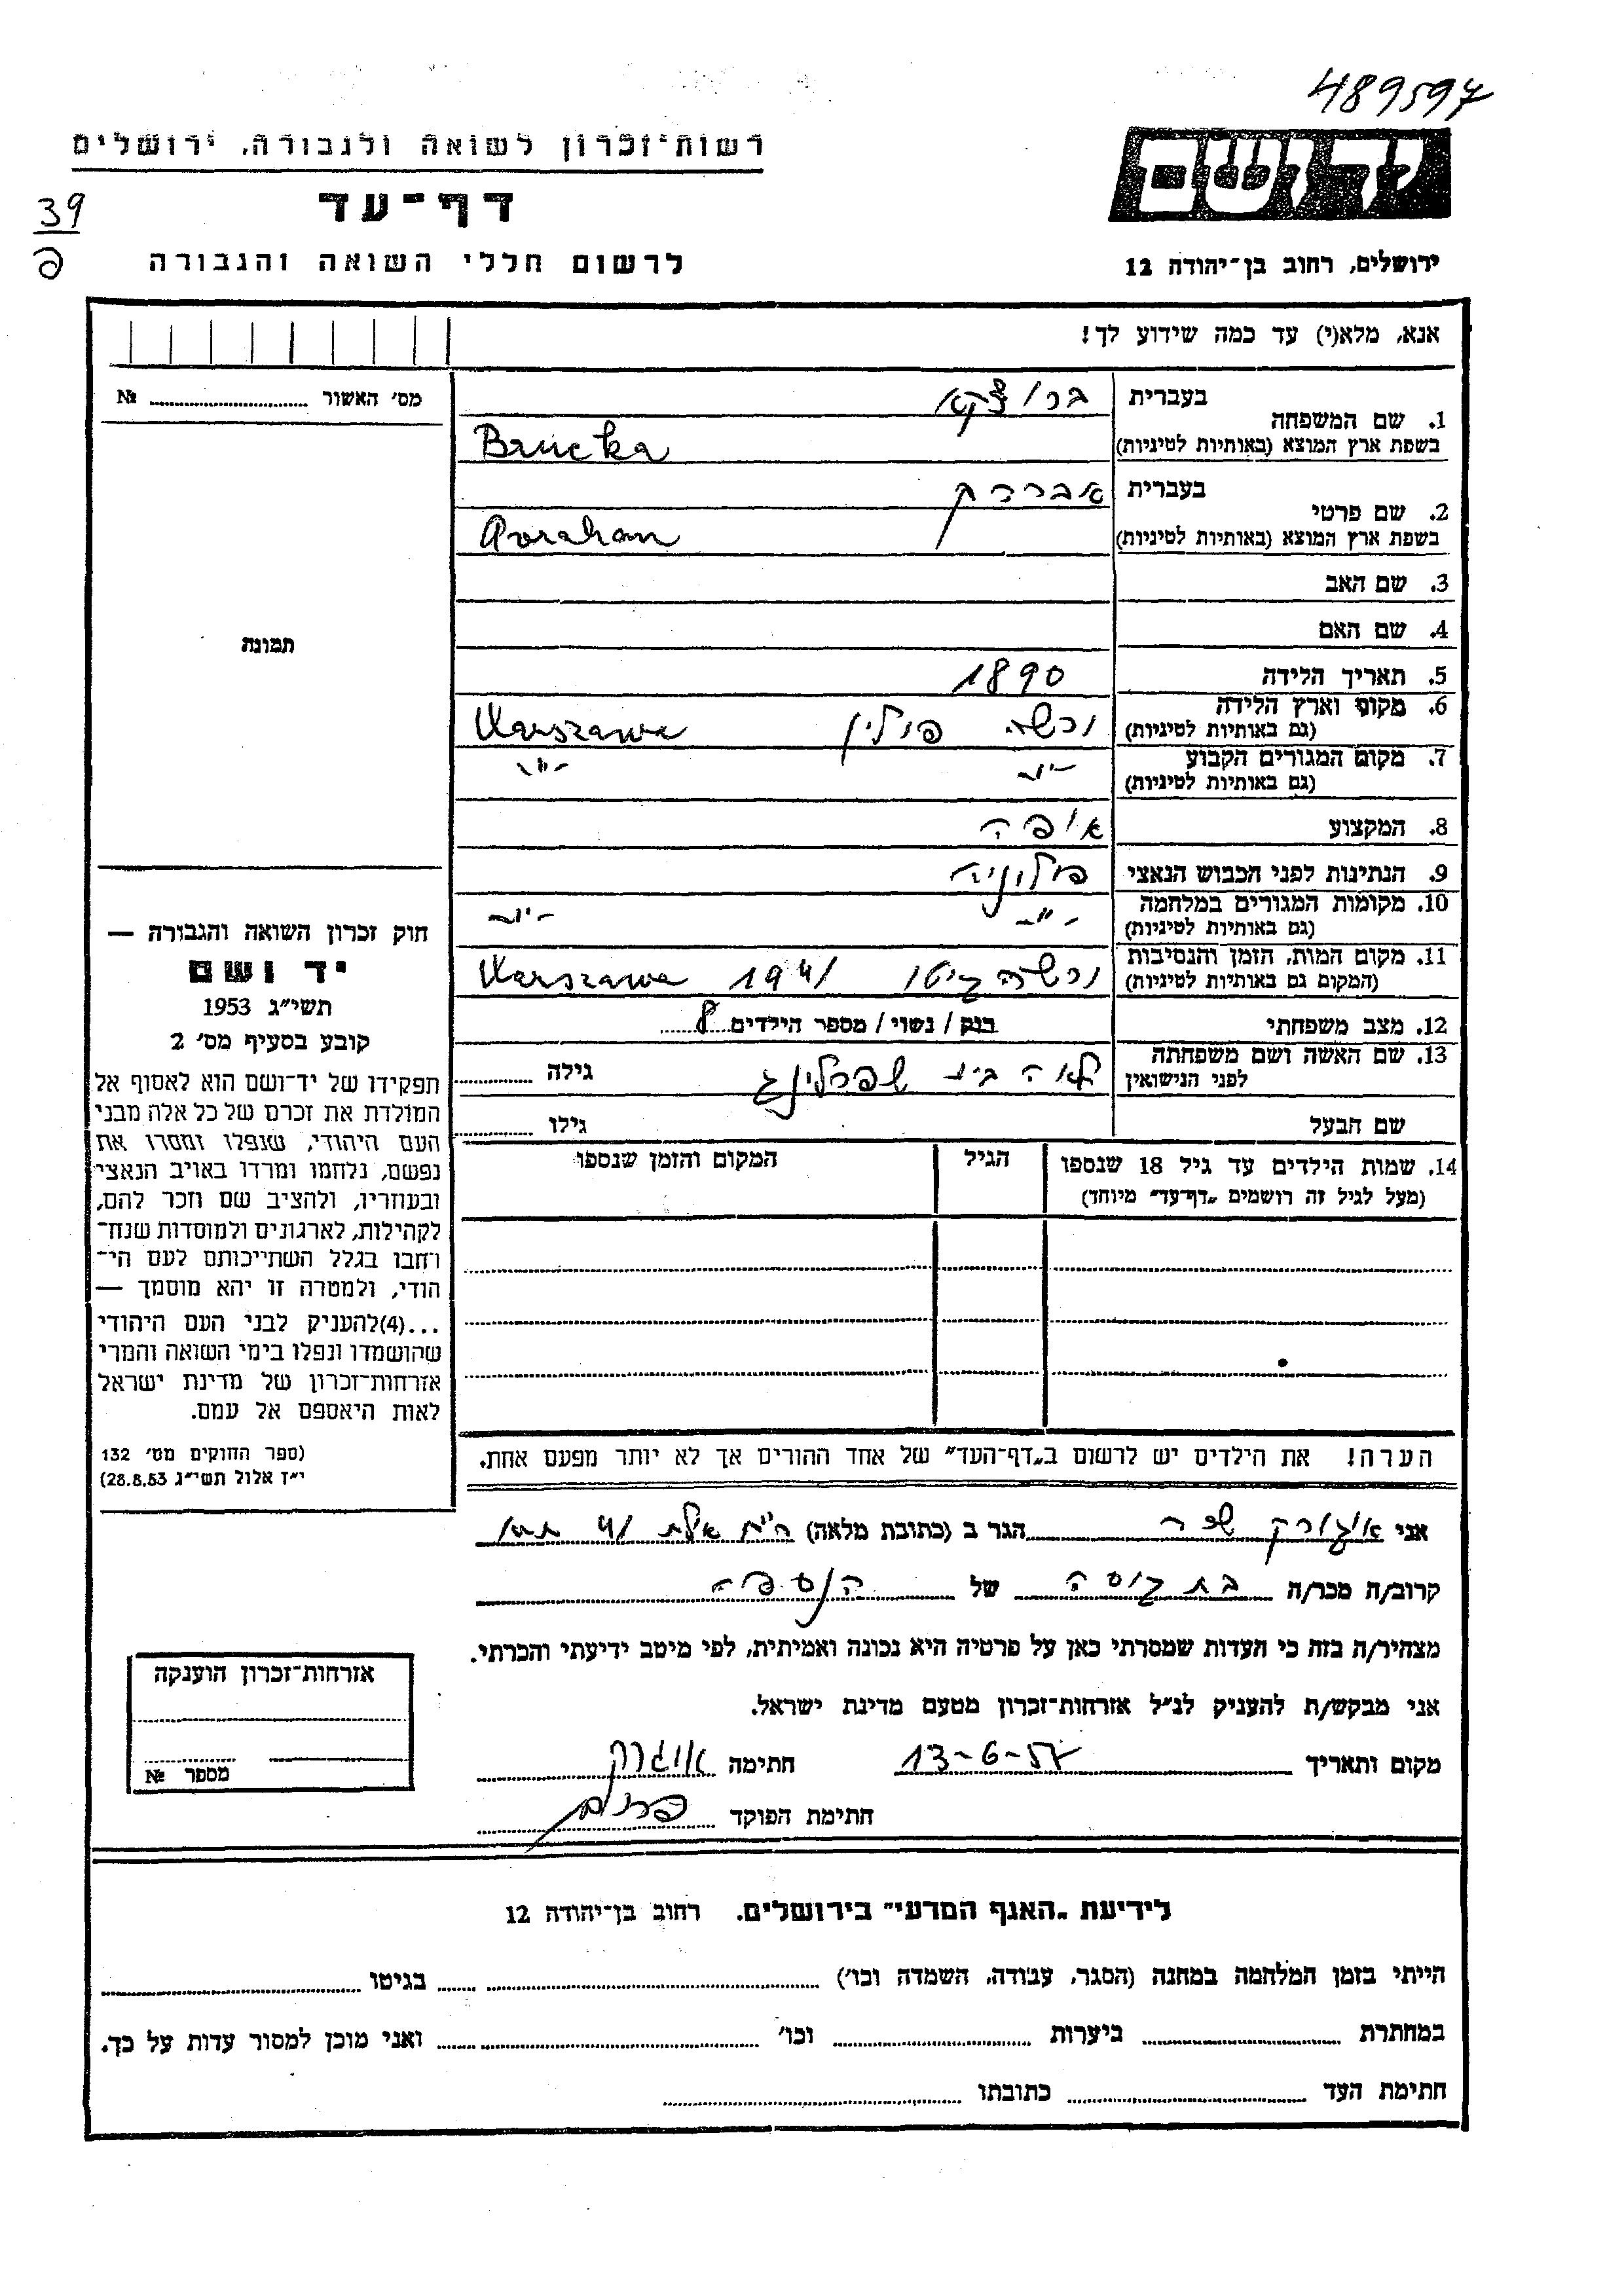 489597
רשות־זכרון לשואה ולגבורה, ירושלים
ידושם
דף־עד
39
לרשום חללי השואה והגבורה
ירושלים, רחוב בן־יהודה 12
אנא, מלא(י) עד כמה שידוע לך!
מס׳ האשור № ........
1. שם המשפחה
בעברית ברוצקא
בשפת ארץ המוצא (באותיות לטיניות) Brucka
2. שם פרטי
בעברית
בשפת ארץ המוצא (באותיות לטיניות) Avraham
3. שם האב
4. שם האם
תמונה
5. תאריך הלידה 1890
6. מקום וארץ הלידה ורשה פולין Warszawa
(גם באותיות לטיניות)
7. מקום המגורים הקבוע -"- -"-
(גם באותיות לטיניות)
8. המקצוע אופה
9. הנתינות לפני הכבוש הנאצי פולוניה
10. מקומות המגורים במלחמה -"- -"-
(גם באותיות לטיניות)
11. מקום המות, הזמן והנסיבות ורשה גיטו 1941 Warszawa
(המקום גם באותיות לטיניות)
12. מצב משפחתי רווק / נשוי / מספר הילדים 8
13. שם האשה ושם משפחתה
לפני הנישואין
לאה בית שפרלינג גילה ........
שם הבעל גילו ........
14. שמות הילדים עד גיל 18 שנספו
(מעל לגיל זה רושמים „דף־עד״ מיוחד)
הגיל
המקום והזמן שנספו
הערה! את הילדים יש לרשום ב„דף־העד״ של אחד ההורים אך לא יותר מפעם אחת.
חוק זכרון השואה והגבורה —
יד ושם
תשי״ג 1953
קובע בסעיף מס׳ 2
תפקידו של יד־ושם הוא לאסוף אל
המולדת את זכרם של כל אלה מבני
העם היהודי, שנפלו ומסרו את
נפשם, נלחמו ומרדו באויב הנאצי
ובעוזריו, ולהציב שם וזכר להם,
לקהילות, לארגונים ולמוסדות שנח־
רחבו בגלל השתייכותם לעם הי־
הודי, ולמטרה זו יהא מוסמך —
...(4)להעניק לבני העם היהודי
שהושמדו ונפלו בימי השואה והמרי
אזרחות־זכרון של מדינת ישראל
לאות היאספם אל עמם.
(ספר החוקים מס׳ 132
י״ז אלול תשי״ג 28.8.53)
אני הגר ב (כתובת מלאה)
קרוב/ה מכר/ה של
מצהיר/ה בזה כי העדות שמסרתי כאן על פרטיה היא נכונה ואמיתית, לפי מיטב ידיעתי והכרתי.
אני מבקש/ת להעניק לנ״ל אזרחות־זכרון מטעם מדינת ישראל.
מקום ותאריך 13-6-57 חתימה
חתימת הפוקד
אזרחות־זכרון הוענקה
מספר №
לידיעת „האגף המדעי״ בירושלים. רחוב בן־יהודה 12
הייתי בזמן המלחמה במחנה (הסגר, עבודה, השמדה וכו׳) ........ בגיטו ........
במחתרת ........ ביערות ........ וכו׳ ........ ואני מוכן למסור עדות על כך.
חתימת העד ........ כתובתו ........